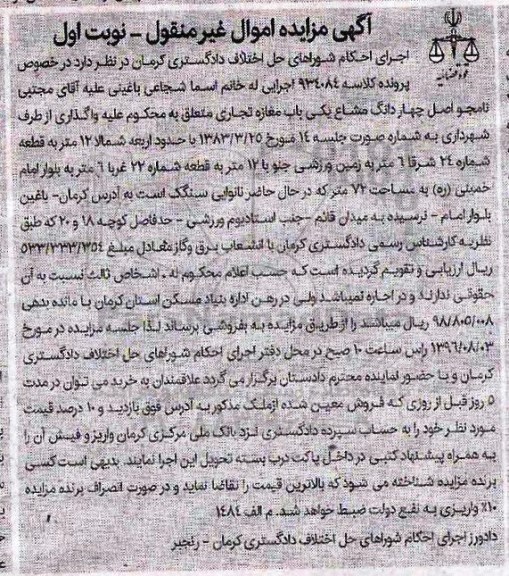 آگهی مزایده اموال غیر منقول - نوبت اول
اجرای احکام شوراهای حل اختلاف دادگستری کرمان در نظر دارد در خصوص
پرونده کلاسه ۹۳۴۰۸۴ اجرایی له خانم اسما شجاعی باغینی علیه آقای مجتبی
نامجو اصل چهار دانگ مشاع یکی باب مغازه تجاری متعلق به محکوم علیه واگذاری از طرف
شهرداری به شماره صورت جلسه ۱۴ مورخ ۱۳۸۳/۳/۲۵ با حدود اربعه شمالا ۱۲ متر به قطعه
شماره ۲۴ شرقا ۶ متر به زمین ورزشی جلو با ۱۲ متر به قطعه شماره ۲۲ غربا ۶ متر به بلوار امام
خمینی (ره) به مساحت ۷۲ متر که در حال حاضر نانوایی سنگک است به آدرس کرمان- باغین
بلوار امام - نرسیده به میدان قائم - جنب استادیوم ورزشی - حدفاصل کوچه ۱۸ و ۲۰ که طبق
نظریه کارشناس رسمی دادگستری کرمان با انشعاب برق وگاز معادل مبلغ ۵۳۳/۳۳۳/۳۵۴
ریال ارزیابی و تقویم گردیده است که حسب اعلام محکوم له . اشخاص ثالث نسبت به آن
حقوقی ندارند و در اجاره نمیباشد ولی در رهن اداره بنیاد مسکن استان کرمان با مانده بدهی
۹۸/۸۰۵/۰۰۸ ریال میباشند را از طریق مزایده به بفروشی برساند لذا جلسه مزایده در مورخ
۱۳۹۶/۰۸/۰۳ راس ساعت ۱۰ صبح در محل دفتر اجرای احکام شوراهای حل اختلاف دادگستری
کرمان و با حضور نماینده محترم دادستان برگزار می گردد علاقمندان به خرید می توان در مدت
۵ روز قبل از روزی که فروش معین شده از ملک مذکور به آدرس فوق بازدید و ۱۰ درصد قیمت
مورد نظر خود را به حساب سپرده دادگستری نزد بانک ملی مرکزی کرمان واریز و فیش آن را
به همراه پیشنهاد کتبی در داخل پاکت درب بسته تحویل این اجرا نمایند. بدیهی است کسی
برنده مزایده شناخته می شود که بالاترین قیمت را تقاضا نماید و در صورت انصراف برنده مزایده
۱۰٪ واریزی به نفع دولت ضبط خواهد شد. م الف ۱۴۸۴
دادورز اجرای احکام شوراهای حل اختلاف دادگستری کرمان - رنجبر